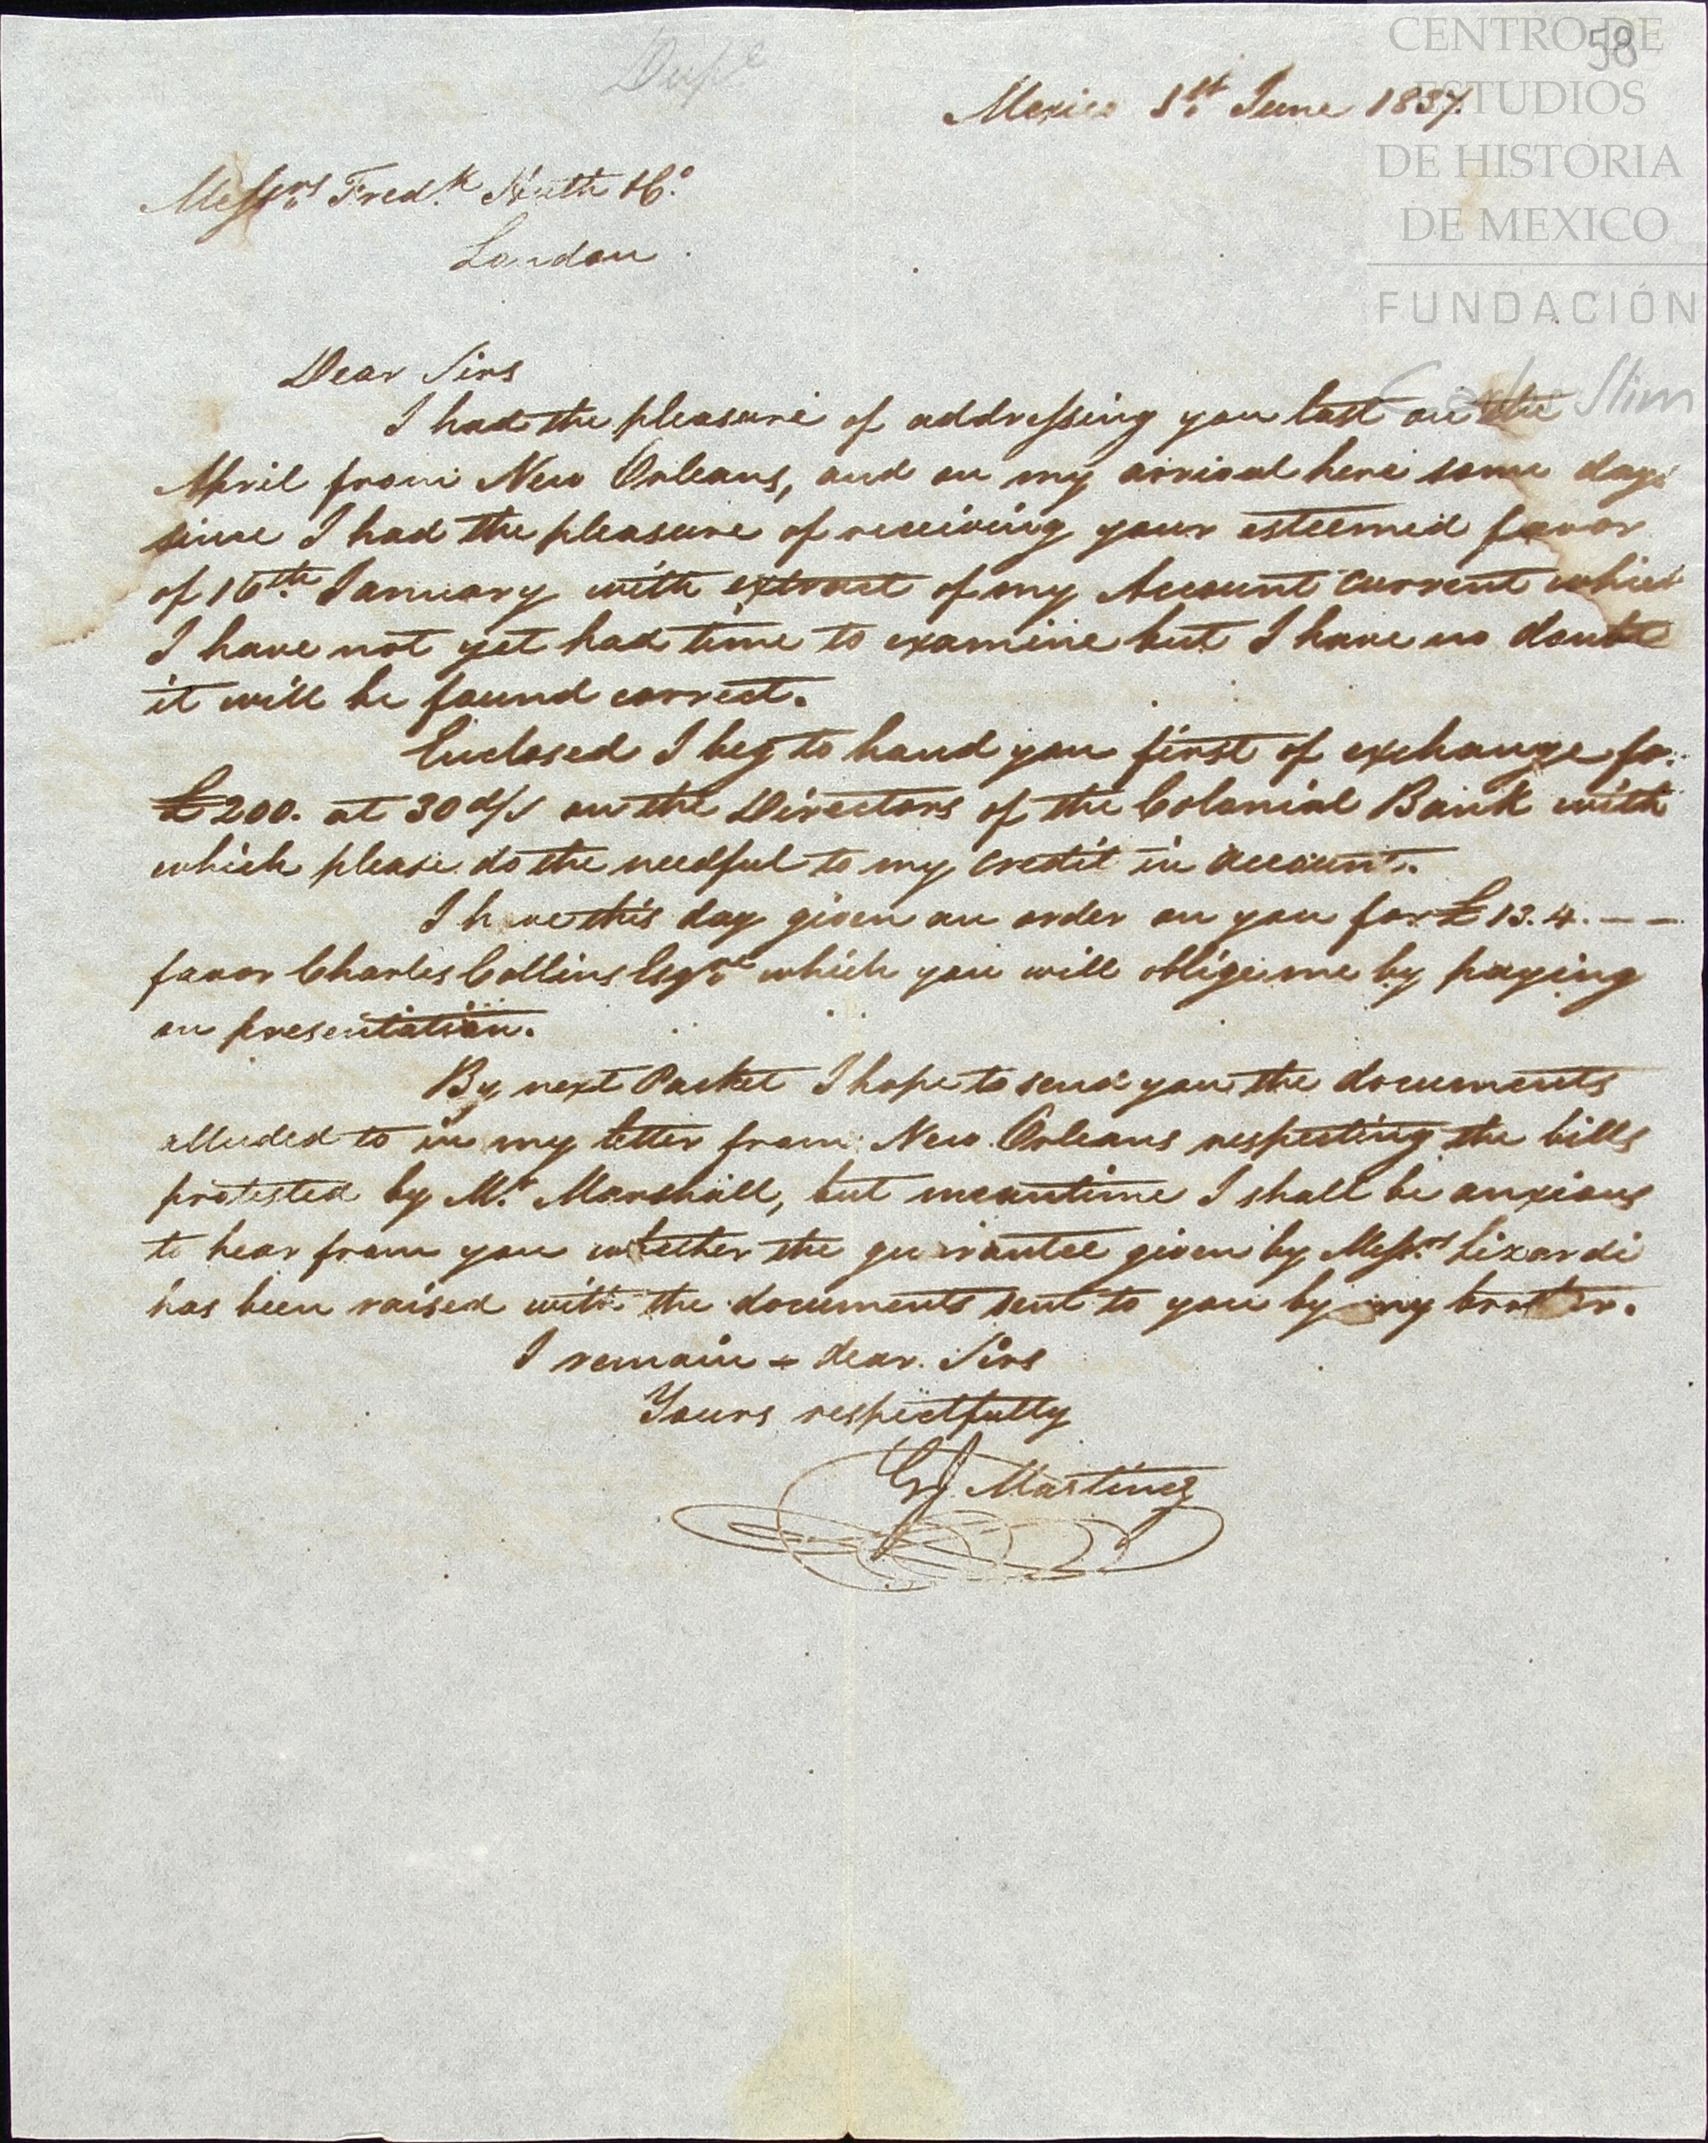 58
CENTRO DE
ESTUDIOS
DE HISTORIA
DE MEXICO
FUNDACIÓN
Carlos Slim
Dupe
Mexico 1st June 1837.
Messrs Fredk Huth &Co
London.
Dear Sirs
I had the pleasure of addressing you last on the
April from New Orleans, and on my arrival here some days
since I had the pleasure of receiving your esteemed favor
of 16th January with extract of my Account current which
I have not yet had time to examine but I have no doubt
it will be found correct.
Enclosed I beg to hand you first of exchange for
£200. at 30 d/s on the Directors of the Colonial Bank with
which please do the needful to my credit in account.
I have this day given an order on you for £13.4.--
favor Charles Collins Esqre which you will oblige me by paying
on presentation.
By next Packet I hope to send you the documents
alluded to in my letter from New Orleans respecting the bills
protested by Mr Marshall, but meantime I shall be anxious
to hear from you whether the guarantee given by Messrs Lizardi
has been raised with the documents sent to you by my brother.
I remain - dear Sirs
Yours respectfully
GJ Martinez